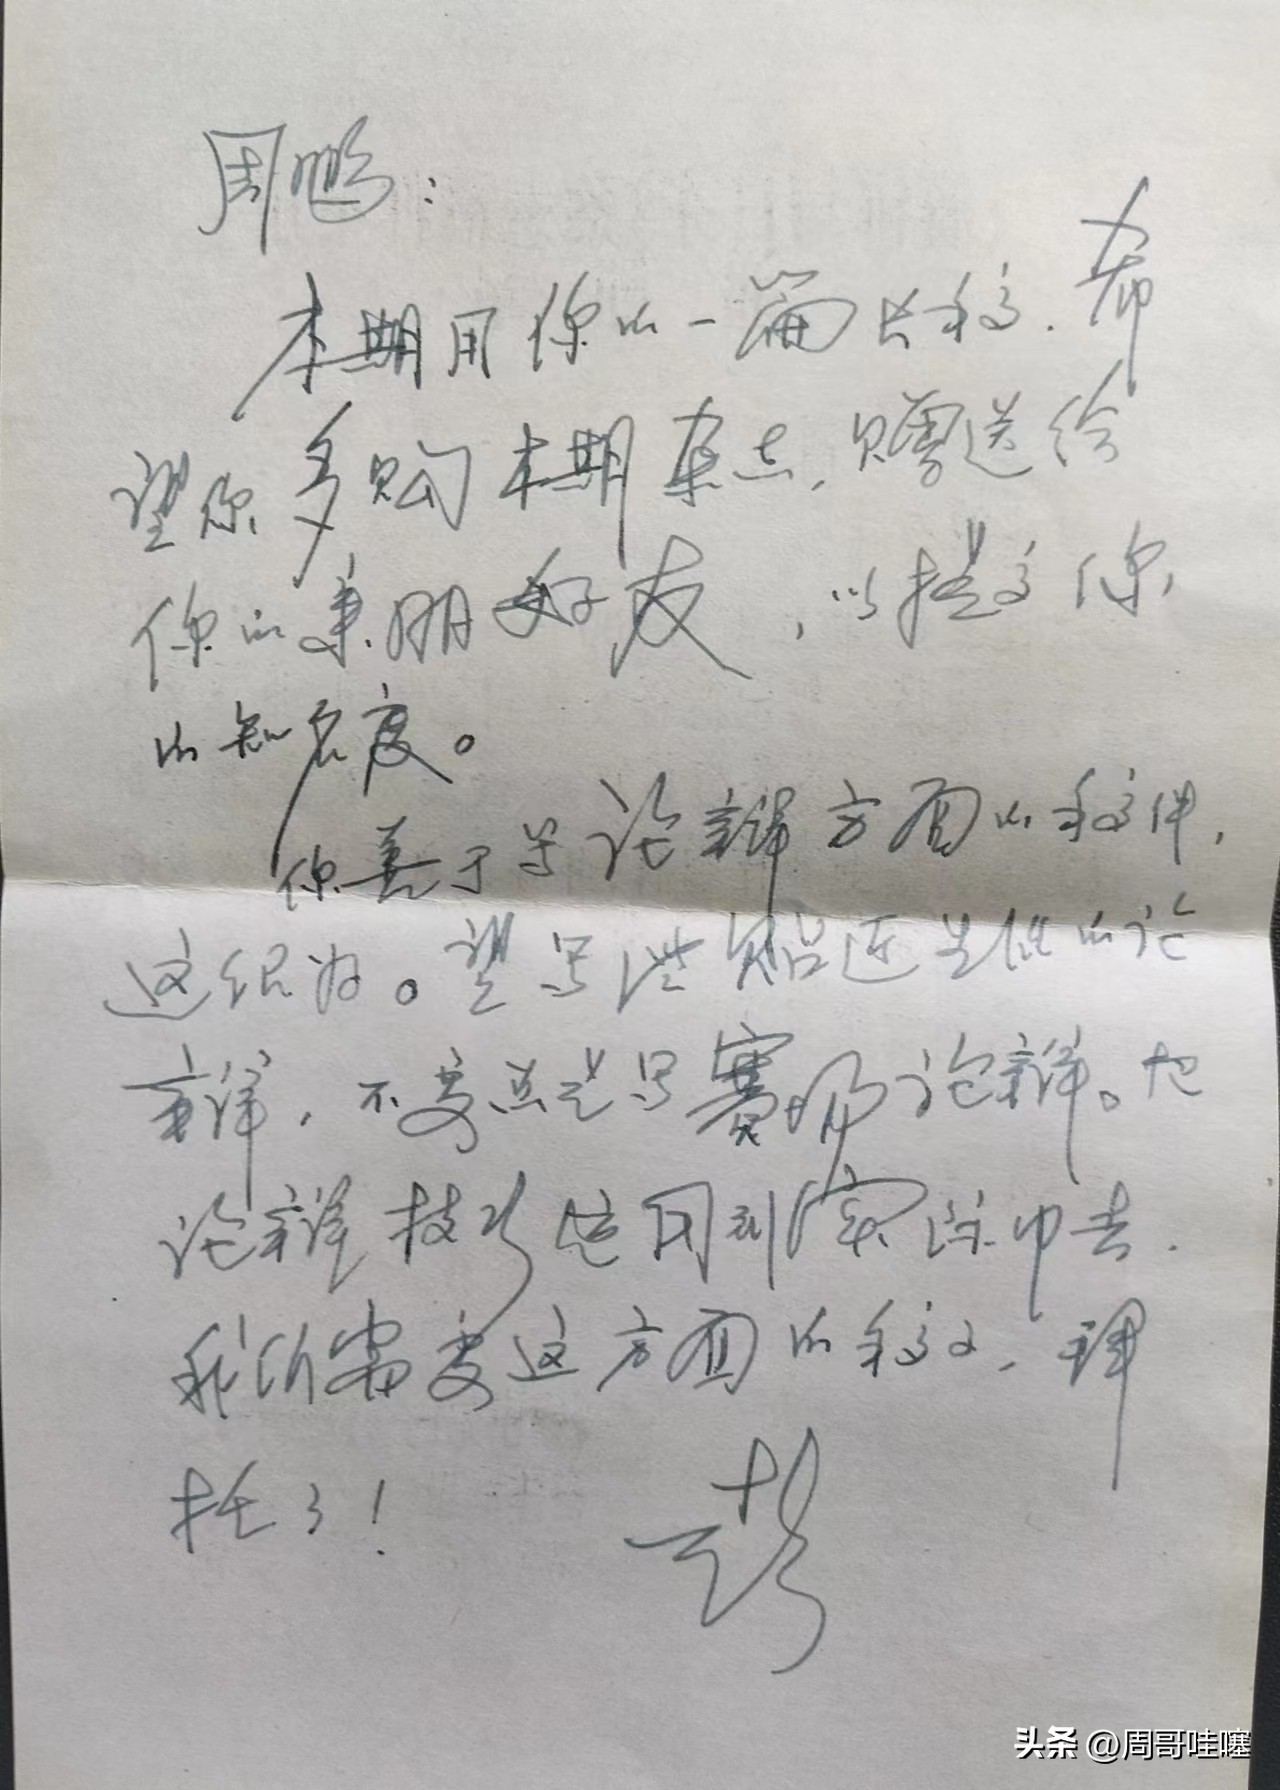 周鹏：
本期用你的一篇长稿.希
望你多购本期杂志,赠送给
你的亲朋好友,以提高你
的知名度。
你善于写论辩方面的稿件,
这很好。望写些贴近生活的论
辩,不要总是写赛场论辩。把
论辩技巧运用到实际中去.
我们需要这方面的稿子,拜
托了！
彭
头条 @周哥哇噻